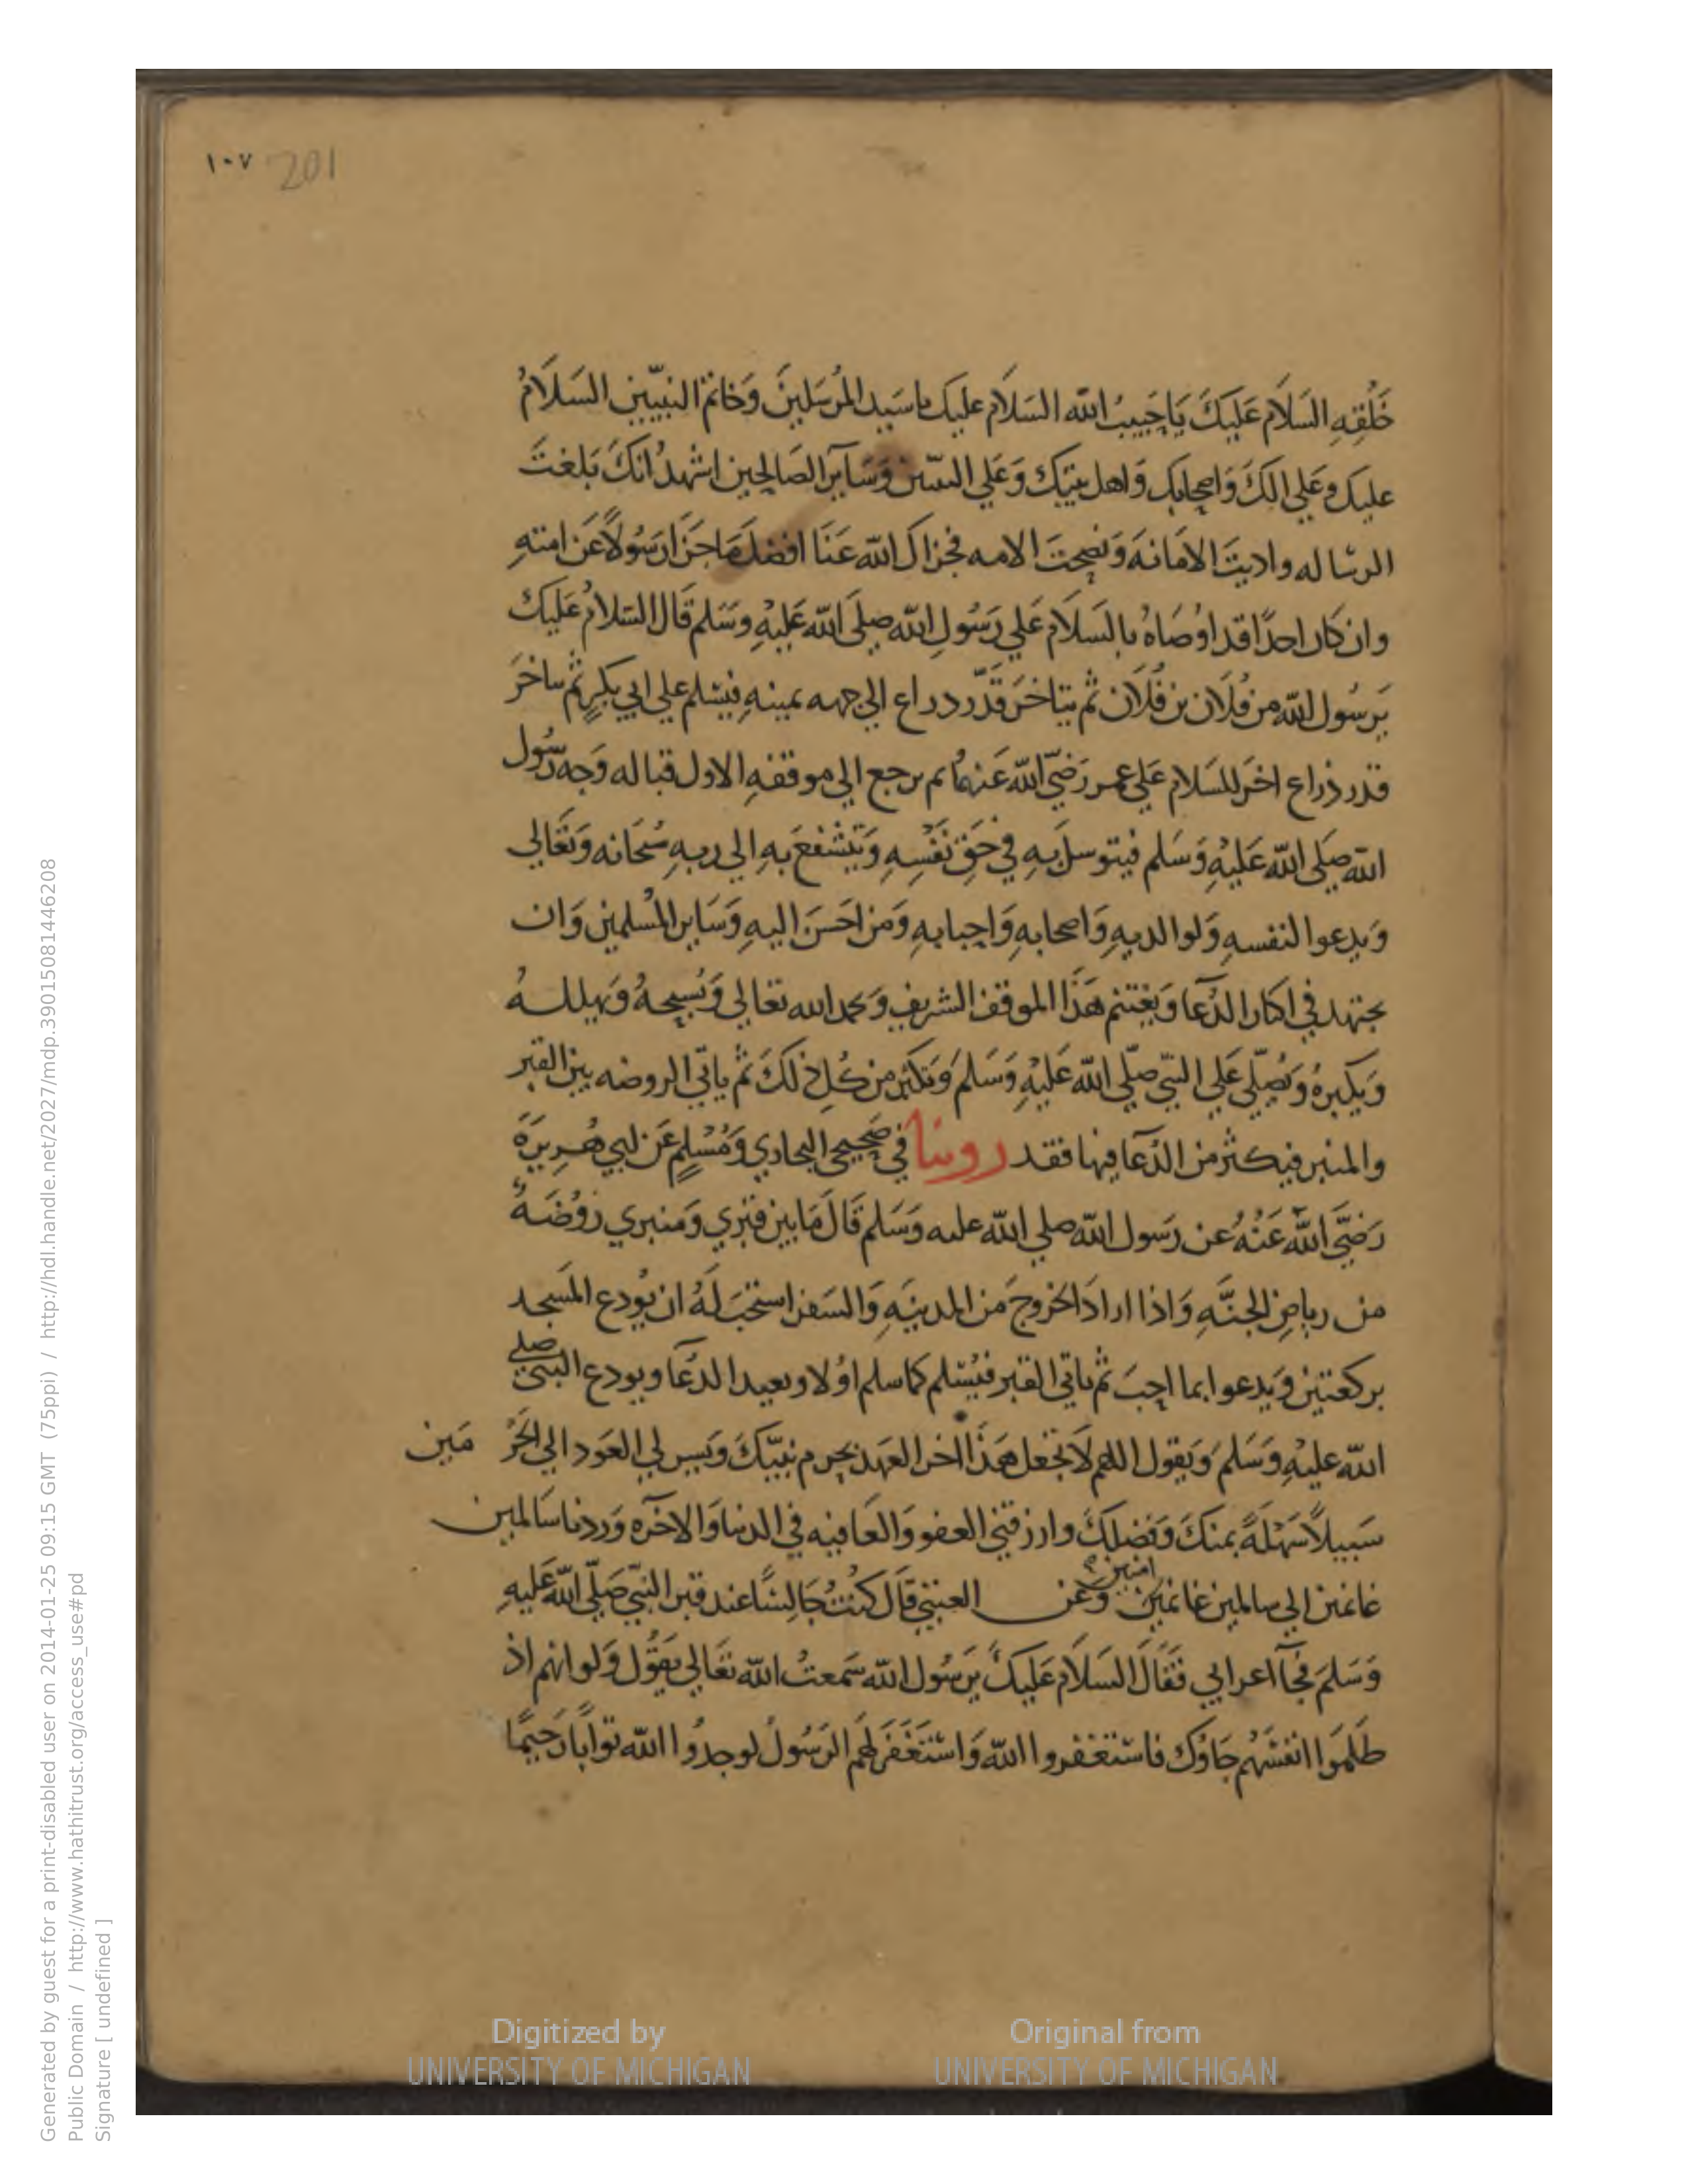 ١٠٧ 201
خَلْقِهِ السَلَام عَلَيكَ يَا حَبِيبُ الله السَلَام عليك ياسَيد المُرسَلينَ وَخَاتم النبيّين السَلَامُ
عليك وعَلي الكَ وَاصحابِك وَاهل بيتِك وَعَلي النبيين وَسَائر الصَالحِين اشهدُ انكَ بَلغتَ
الرسَاله واديتَ الامَانهَ وَنصحتَ الامه فجزاكَ الله عَنَا افضلَ مَا جَزَا رَسُولاً عَن امتهِ
وان كان احدًا قد اوُصَاهُ بالسَلَام عَلي رَسُولِ الله صلي الله عَليهِ وسَلم قَال السَلامُ عَليك
يَرسُول الله من فُلَان بن فُلَان ثم يتاخرَ قَدَر دراع الي جهه يمينهِ فيسَلم علي ابي بكرٍ ثم يتاخرَ
قدر ذراع اخرَ للسَلام عَلي عمر رَضيَ الله عَنهُما ثم يرجع الي موقفهِ الاول قباله وَجه رَسُول
الله صَلي الله عَليهِ وَسَلم فيتوسلَ بهِ في حَقِ نَفسِهِ وَيتشفعَ بهِ الي ربهِ سُبحَانه وَتعَالي
وَيدعوا لنفسهِ وَلوالديهِ وَاصحابهِ وَاحبابهِ وَمن احَسَنَ اليهِ وَسَاير المُسلمين وَان
يجتهد في اكثار الدُعَا وَيغتنم هَذَا الموقف الشريف وَيحمد الله تعالي وَيُسبحهُ وَيهللهُ
وَيكبرهُ وَيُصلّي عَلي النبيّ صلّي الله عَليهِ وَسَلم وَيكثر من كُلِ ذلكَ ثم ياتي الروضه بين القبر
والمنبر فيكثر من الدُعَا فيها فقد روينا في صَحِيحي البخاري وَمُسْلِمٍ عَن ابي هُريرَةَ
رَضيَ اللهُ عَنْهُ عن رَسول الله صلي الله عليه وَسَلم قَالَ مَا بين قَبَري وَمنبري رَوُضَهُ
من رياضِ الجنَّهِ وَاذا ارادَ الخروجَ مَن المدينَهِ وَالسَفر استحبَ لَهُ ان يُودع المَسجد
بركعتين وَيدعوا بما احبَ ثم ياتي القبر فيُسَلم كما سلم اوُلا ويعيد الدعَا ويودع النبيّ صلي
الله عليهِ وَسَلم وَيقول اللهم لَا تجعل هَذَا اخر العَهد بحرم نبيّكَ وَيسر لي العَود الي الحَرَ مَين
سَبيلاً سَهْلَةً بمنكَ وَفضلِكَ وارزقني العفو وَالعَافيه في الدنيا وَالاخره وَردنا سَالمين
غانمين الي سالمين غانمين امنين وَعَن العتبي قَالَ كنتُ جَالِسًا عند قبر النبيّ صَلّي الله عَليهِ
وَسَلمَ فجَآ اعرابي فقَالَ السَلَام عَليكَ يَرسُول الله سَمعتُ الله تعَالي يَقُول وَلو انهم اذ
ظَلَمَوا انفسَهُم جَاوُك فاستغفروا الله وَاستَغفَرَ لهَم الرَسُولُ لوجدُوا الله توابًا رَحيمًا
Digitized by UNIVERSITY OF MICHIGAN
Original from UNIVERSITY OF MICHIGAN
Generated by guest for a print-disabled user on 2014-01-25 09:15 GMT (75ppi) / http://hdl.handle.net/2027/mdp.39015081446208
Public Domain / http://www.hathitrust.org/access_use#pd
Signature [ undefined ]